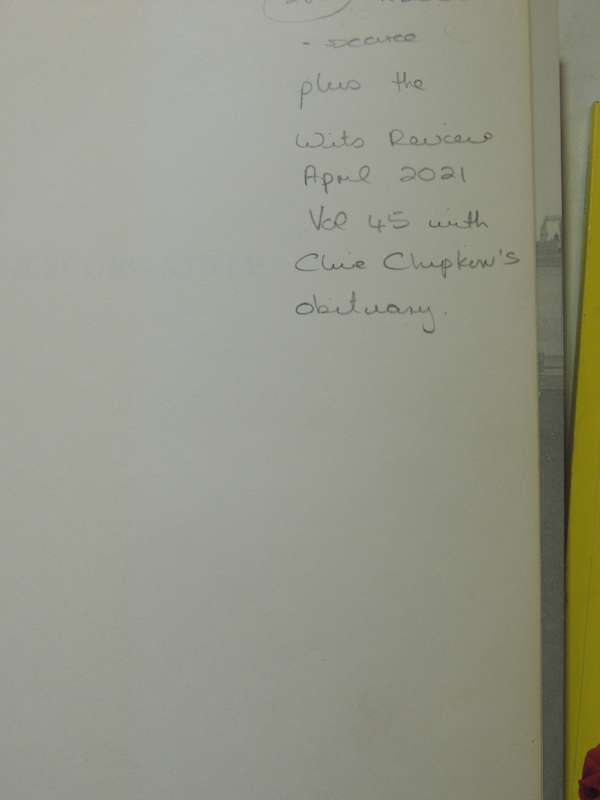 - scarce
plus the
Wits Review
April 2021
Vol 45 with
Clive Chipkin's
obituary.